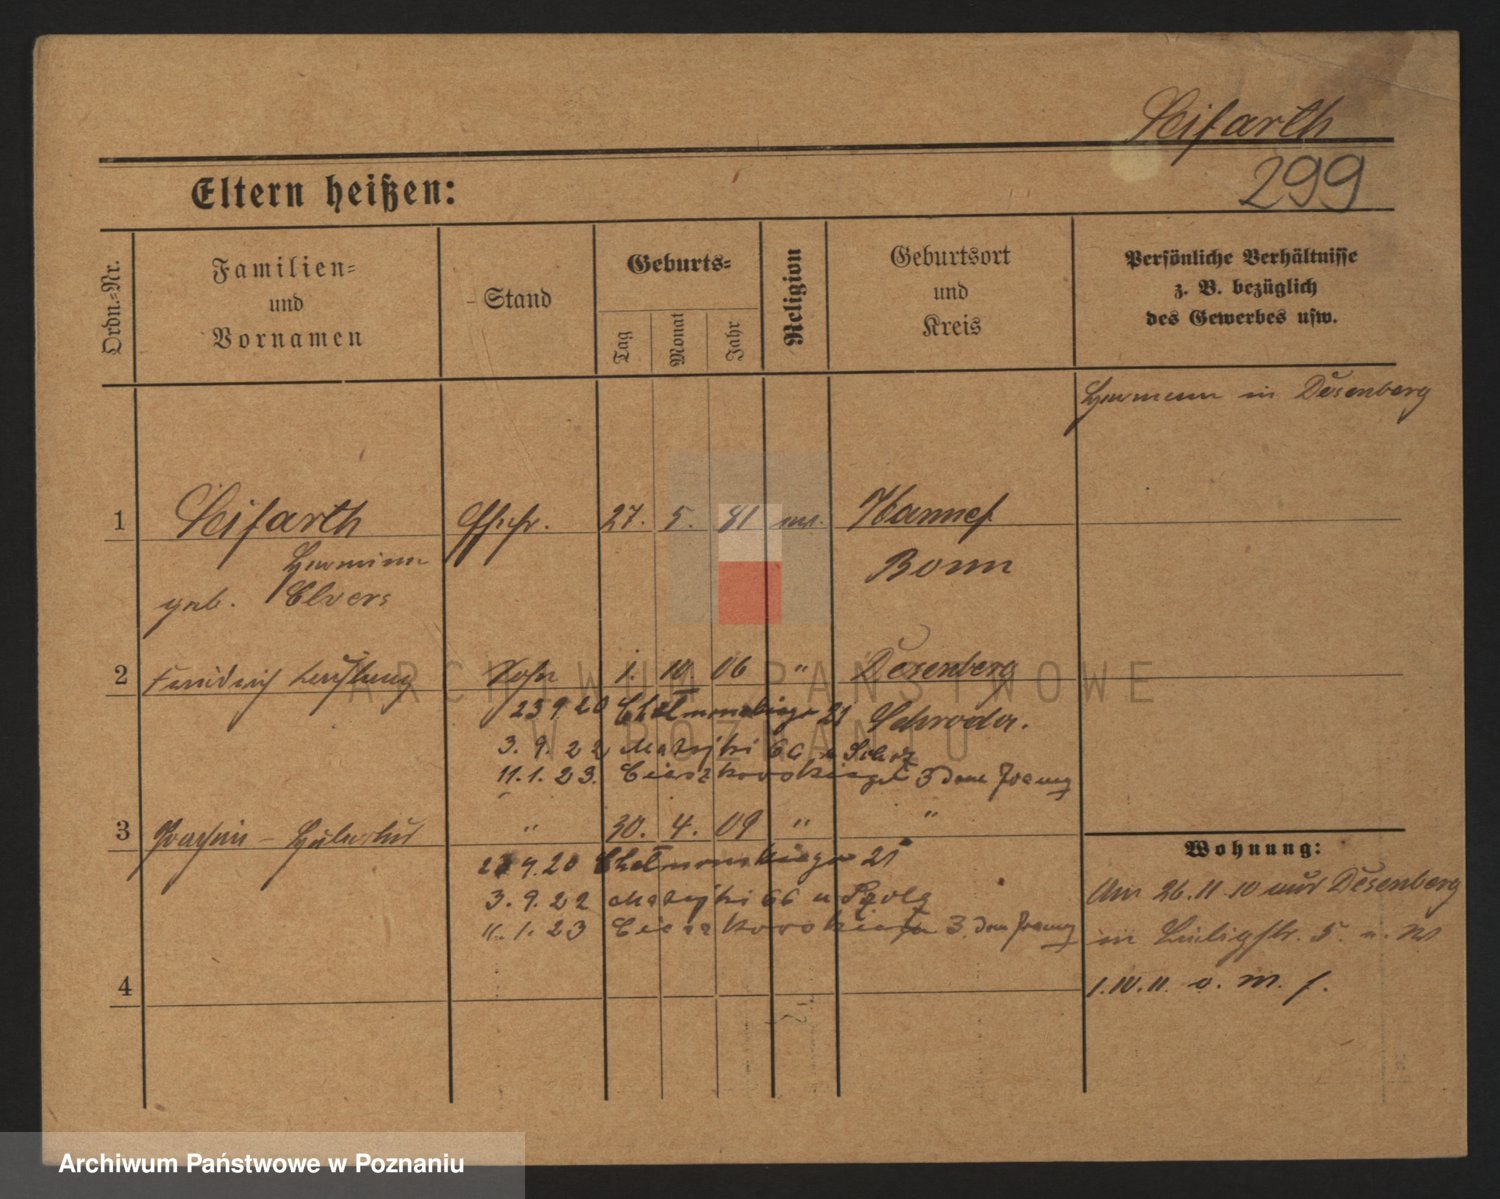 Seifarth
299
Eltern heißen:
Ordn.-Nr.
Familien-
und
Vornamen
Stand
Geburts-
Tag
Monat
Jahr
Religion
Geburtsort
und
Kreis
Persönliche Verhältnisse
z. B. bezüglich
des Gewerbes usw.
in Desenberg
1 Seifarth 27. 5. 81 Hannef
Bonn
geb. Elvers
2 Friedrich Sohn 1. 10 06 " Desenberg
23 9 20 Chełmonskiego 21 Schroda.
3. 9. 22 Matejki 66
11. 1. 23. Cieszkowskiego 3
3 Joachim - " 30. 4. 09 " "
9. 20 Chełmonskiego 21
3. 9. 22 Matejki 66 u
11. 1. 23 Cieszkowskiego 3
Wohnung:
Am 26. 11. 10 aus Desenberg
in 5.
1. 10. 11. o. M. f.
4
ARCHIWUM PAŃSTWOWE
W POZNANIU
Archiwum Państwowe w Poznaniu